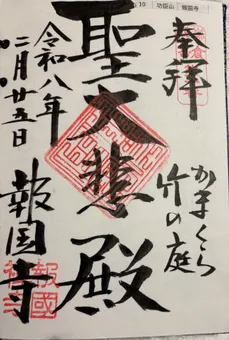 功臣山 報国寺
奉拝
かまくら
竹の庭
聖大悲殿
令和八年
二月廿五日
報国寺